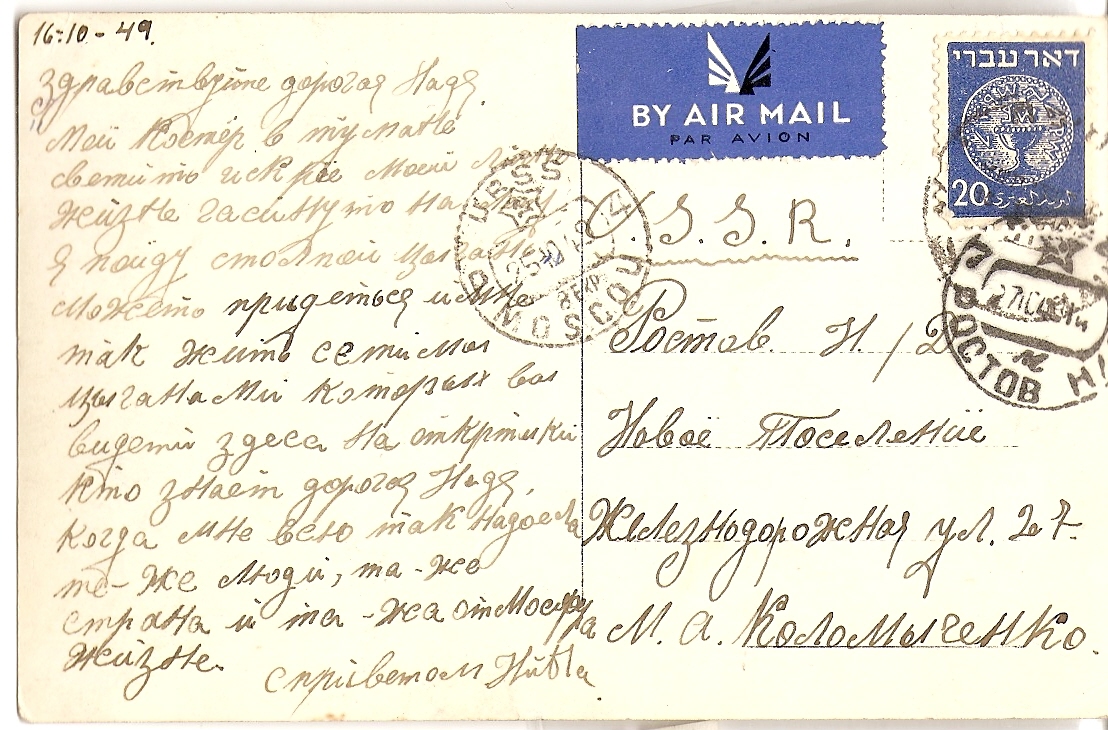 16-10-49.
Здравствуйте дорогая Надя.
Мой Костёр в тумане
светит искры моей
жизне гаснут на
Я пойду стольпой цыган
может придеться и мне
так жить с етими
цыганами которых вы
видети здеса на открітики
кто знает дорогая Надя,
когда мне всю так надоела
те-же люди, та-же
страна и та-жа атмосфера
жизне.
с приветом
BY AIR MAIL
PAR AVION
דאר עברי
20
U.S.S.R.
Ростов. Н./Д
Новое Поселение
Железнодорожная ул. 27-
М. А. Коломыченко.
URSS
MOSCOU
РОСТОВ НА